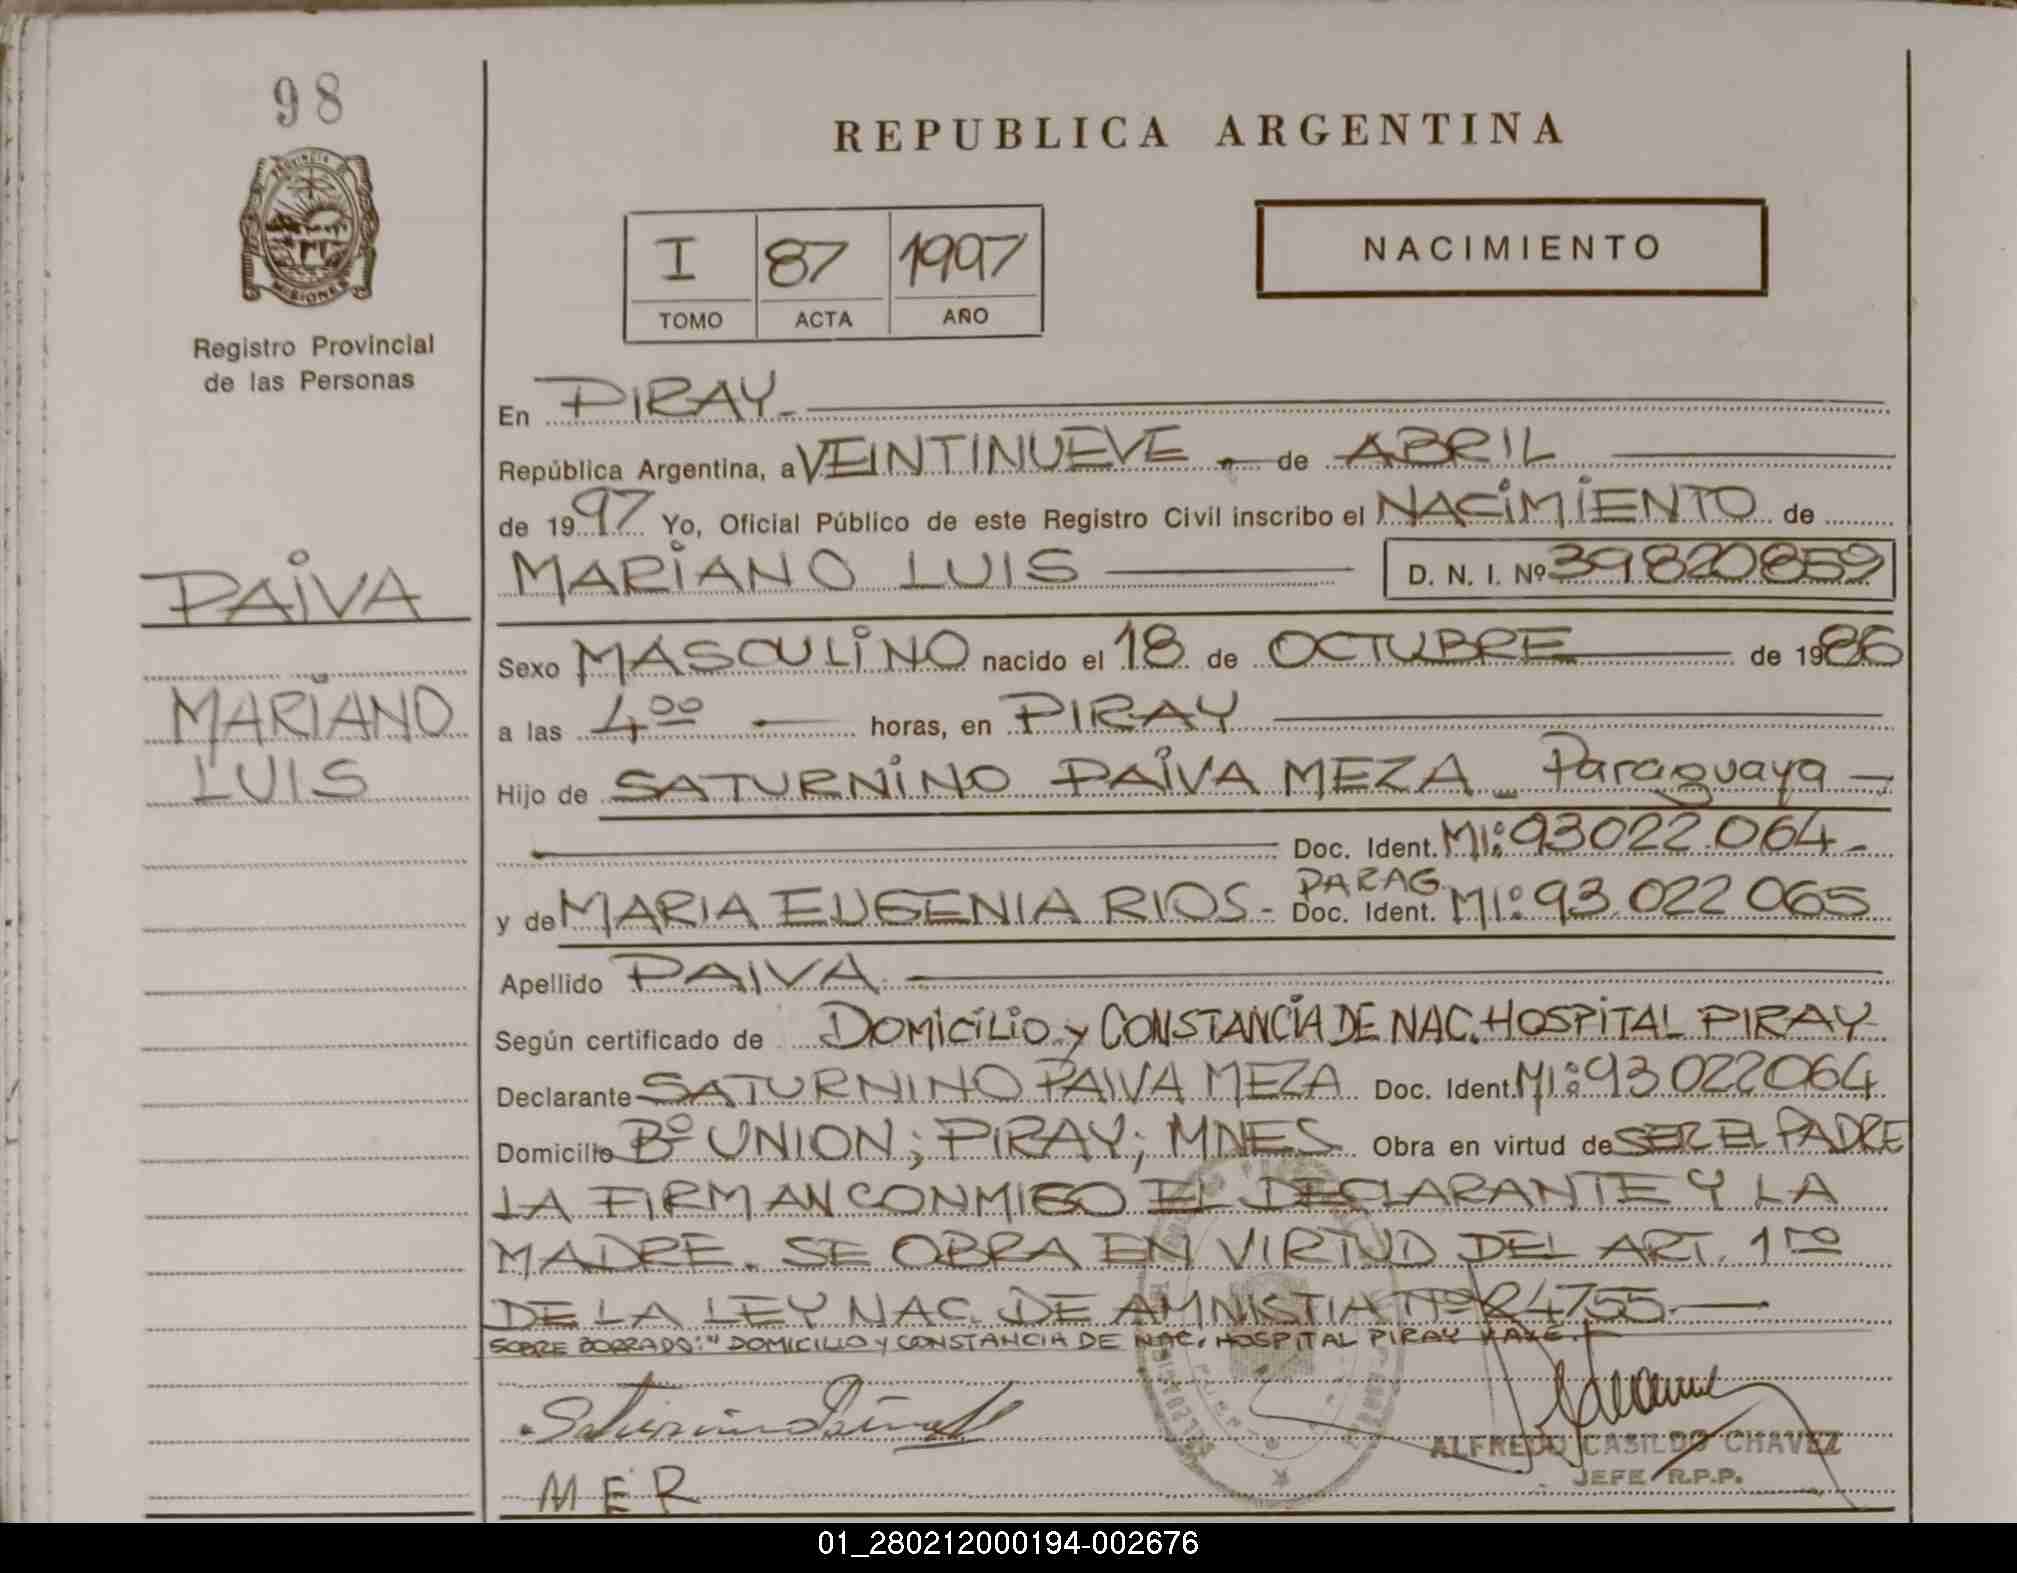 98
PROVINCIA DE
MISIONES
Registro Provincial
de las Personas
PAIVA
MARIANO
LUIS
REPUBLICA ARGENTINA
I 87 1997
TOMO ACTA AÑO
NACIMIENTO
En PIRAY.
República Argentina, a VEINTINUEVE de ABRIL
de 1997 Yo, Oficial Público de este Registro Civil inscribo el NACIMIENTO de
MARIANO LUIS D. N. I. Nº 39820859
Sexo MASCULINO nacido el 18 de OCTUBRE de 1986
a las 4°° horas, en PIRAY
Hijo de SATURNINO PAIVA MEZA - Paraguaya
Doc. Ident. MI: 93022.064-
PARAG.
y de MARIA EUGENIA RIOS- Doc. Ident. MI: 93.022 065
Apellido PAIVA.
Según certificado de DOMICILIO y CONSTANCIA DE NAC. HOSPITAL PIRAY
Declarante SATURNINO PAIVA MEZA Doc. Ident. MI: 93 022064
Domicilio Bº UNION; PIRAY; MNES Obra en virtud de SER EL PADRE
LA FIRMAN CONMIGO EL DECLARANTE Y LA
MADRE. SE OBRA EN VIRTUD DEL ART. 1ro
DE LA LEY NAC. DE AMNISTIA Nº 24755.
SOBRE BORRADO: "DOMICILIO y CONSTANCIA DE NAC. HOSPITAL PIRAY VALE.
M E R
ALFREDO CASILDO CHAVEZ
JEFE R.P.P.
01_280212000194-002676